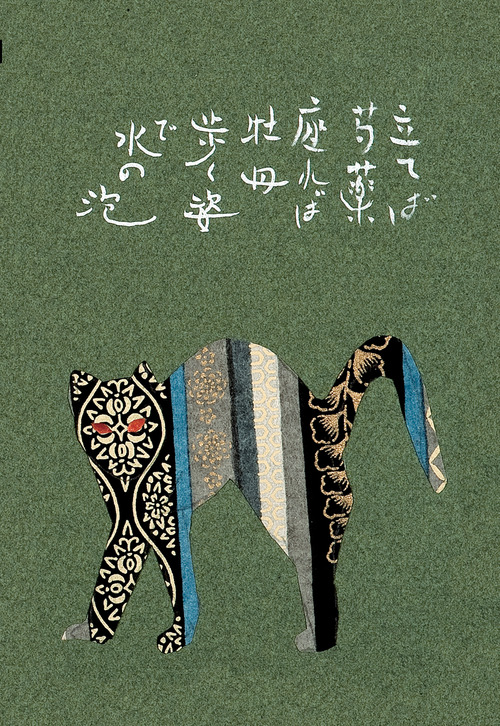 立てば
芍薬
座れば
牡丹
歩く姿
で
水の泡